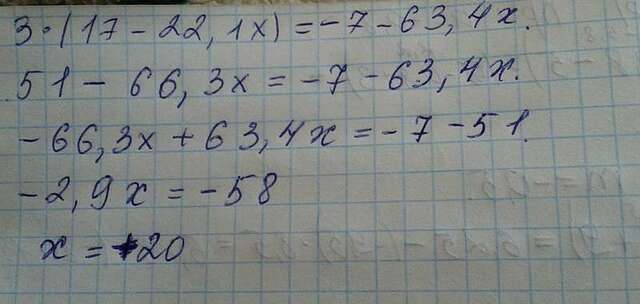 3·(17-22,1x)=-7-63,4x.
51-66,3x=-7-63,4x.
-66,3x+63,4x=-7-51.
-2,9x=-58
x=+20